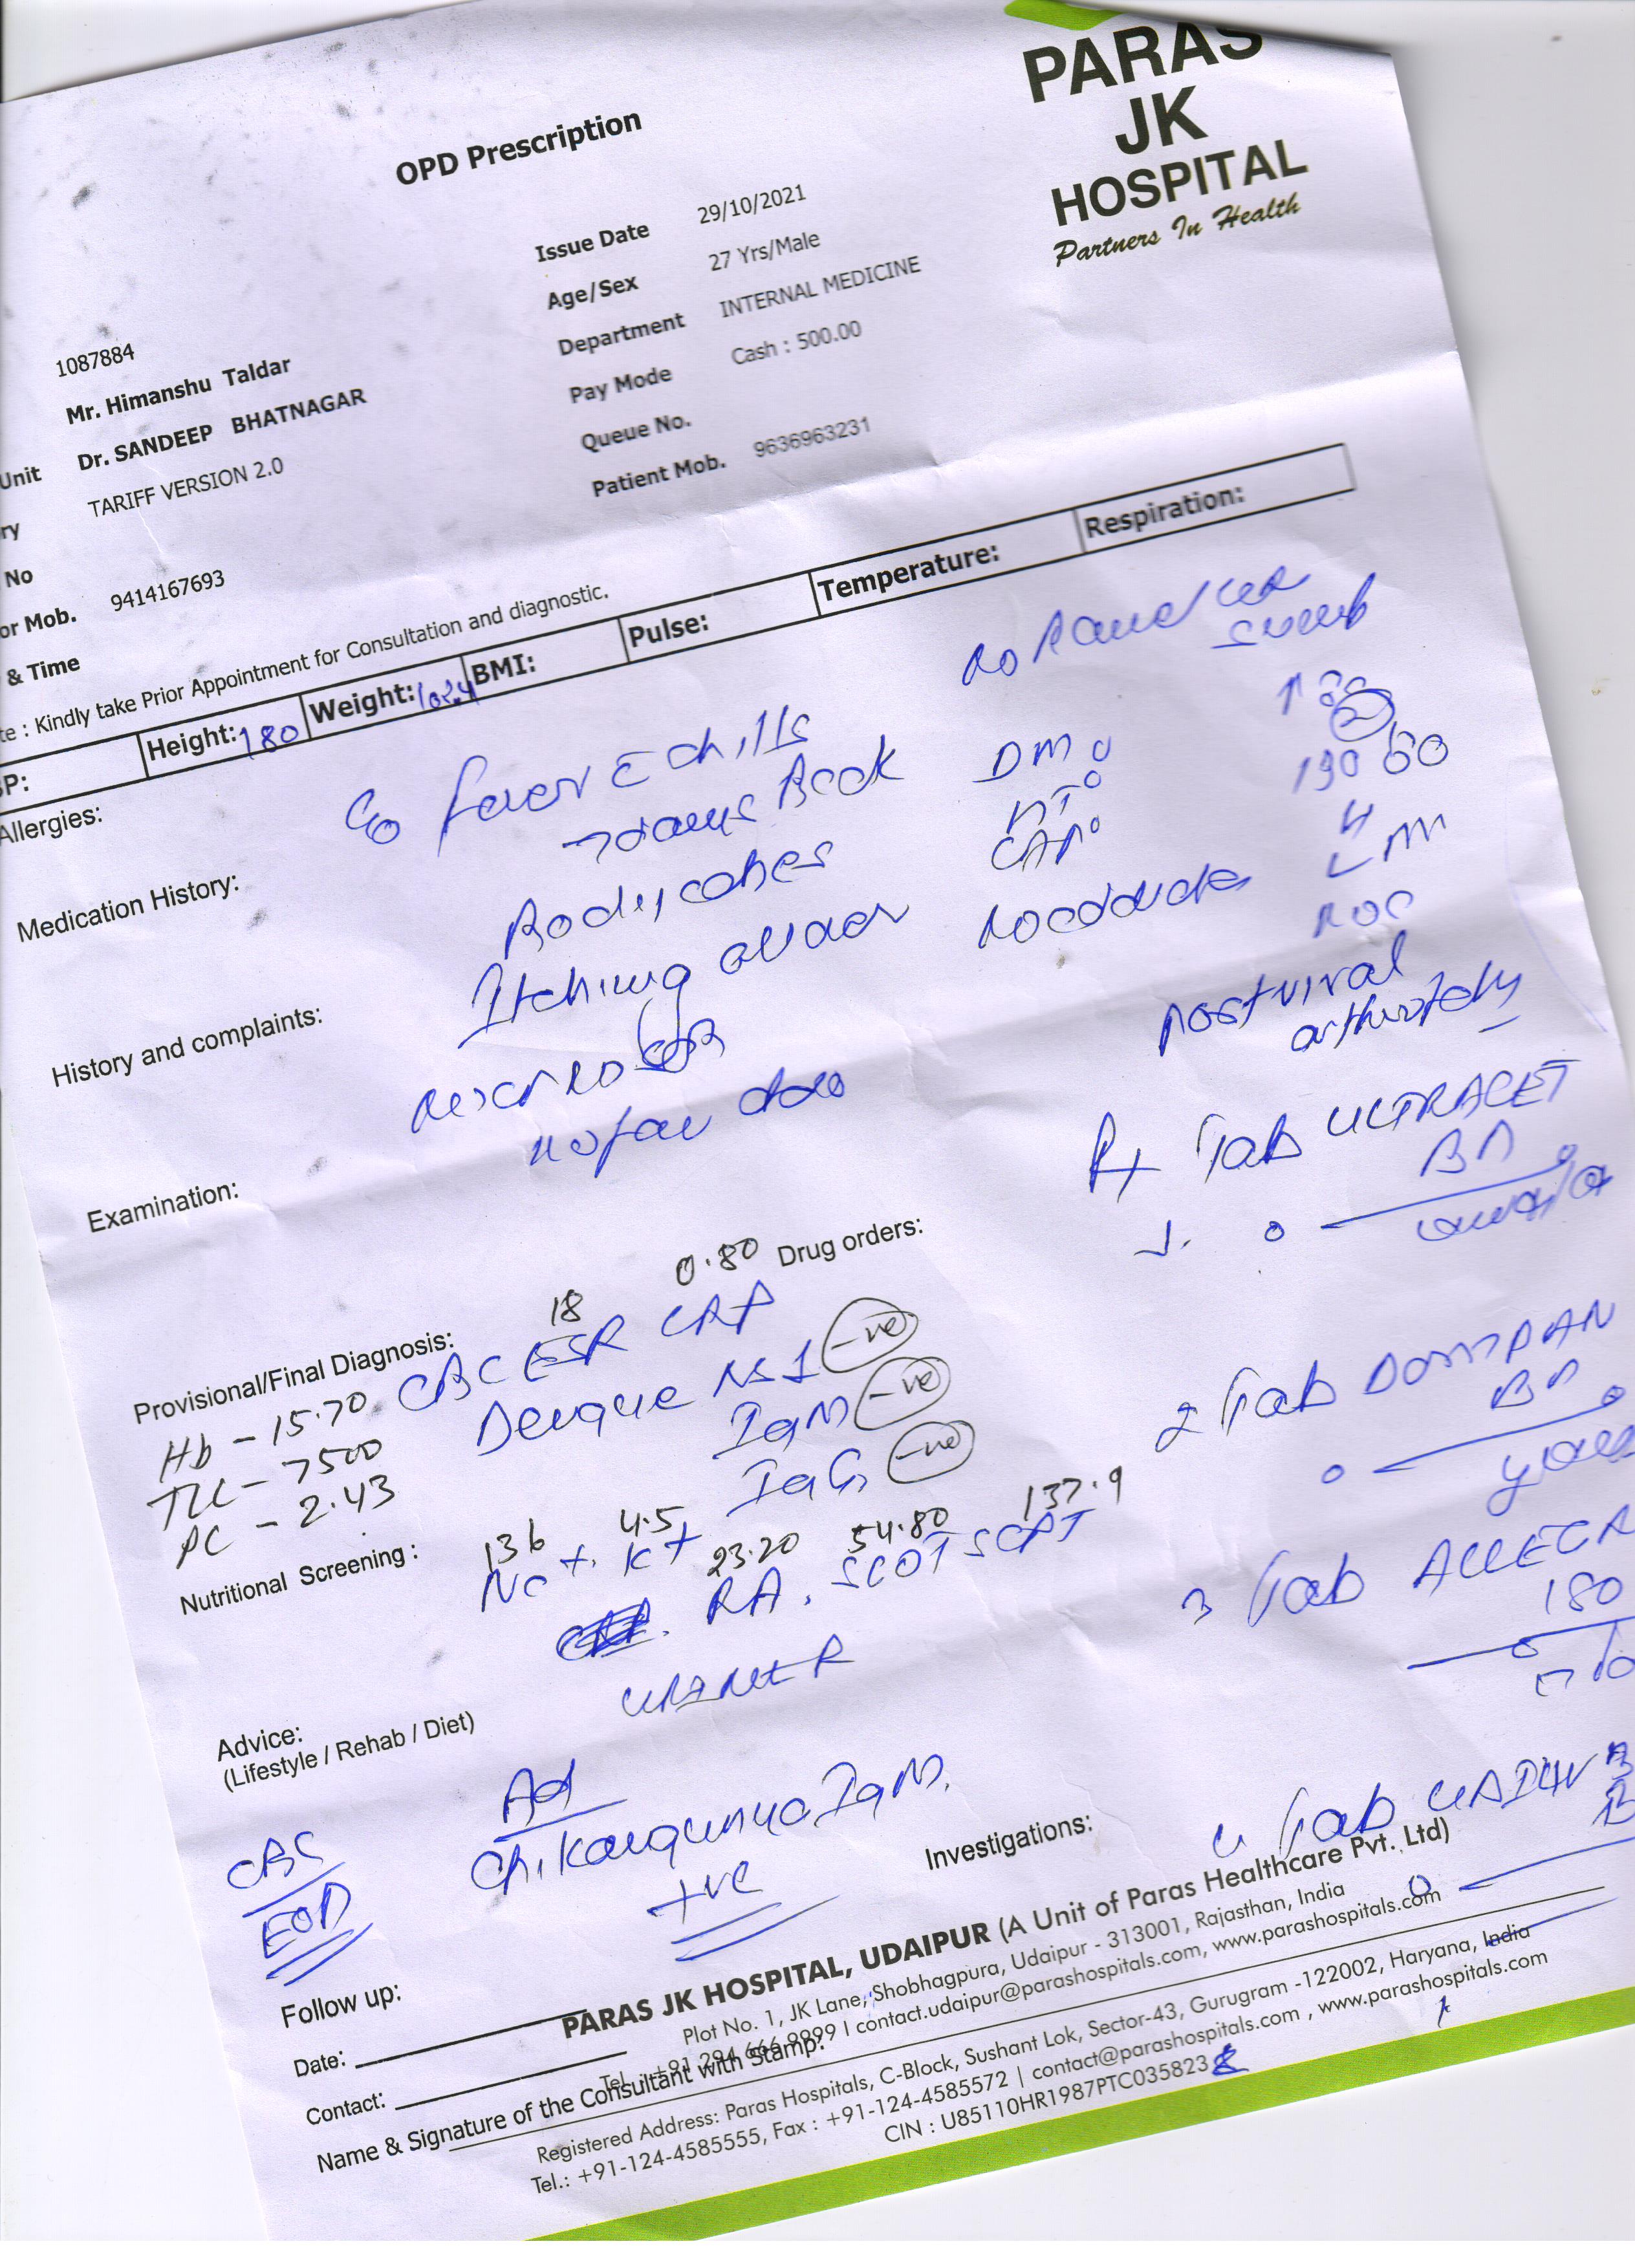 PARAS
JK
HOSPITAL
Partners In Health
OPD Prescription
Issue Date 29/10/2021
Age/Sex 27 Yrs/Male
Department INTERNAL MEDICINE
Pay Mode Cash : 500.00
Queue No.
Patient Mob. 9636963231
1087884
Mr. Himanshu Taldar
Unit Dr. SANDEEP BHATNAGAR
ry TARIFF VERSION 2.0
No
or Mob. 9414167693
& Time
te : Kindly take Prior Appointment for Consultation and diagnostic.
P: Height: 180 Weight: 102.4 BMI: Pulse: Temperature: Respiration:
Allergies:
Medication History:
History and complaints:
Examination:
C/o fever c chills
Back
Bodyaches
Itching
DM
130 80
Post viral
arthropathy
Rx Tab ULTRACET
BD
1.
Drug orders:
Provisional/Final Diagnosis:
18 0.80
CBC ESR CRP
Hb - 15.70
TLC - 7500
PC - 2.43
Dengue NS1 -ve
IgM -ve
IgG -ve
2 Tab DOMPAN
BD
Nutritional Screening :
136 4.5 23.20 54.80 137.9
Na+. K+ RA. SGOT SGPT
URINE R
3 Tab ALLEGRA
180
Advice:
(Lifestyle / Rehab / Diet)
Adv
Chikangunya IgM.
+ve
CBC
EOD
Investigations:
4 Tab
Follow up:
Date:
Contact:
Name & Signature of the Consultant with Stamp:
PARAS JK HOSPITAL, UDAIPUR (A Unit of Paras Healthcare Pvt. Ltd)
Plot No. 1, JK Lane, Shobhagpura, Udaipur - 313001, Rajasthan, India
Tel.: +91 294 666 9999 I contact.udaipur@parashospitals.com, www.parashospitals.com
Registered Address: Paras Hospitals, C-Block, Sushant Lok, Sector-43, Gurugram -122002, Haryana, India
Tel.: +91-124-4585555, Fax : +91-124-4585572 | contact@parashospitals.com , www.parashospitals.com
CIN : U85110HR1987PTC035823